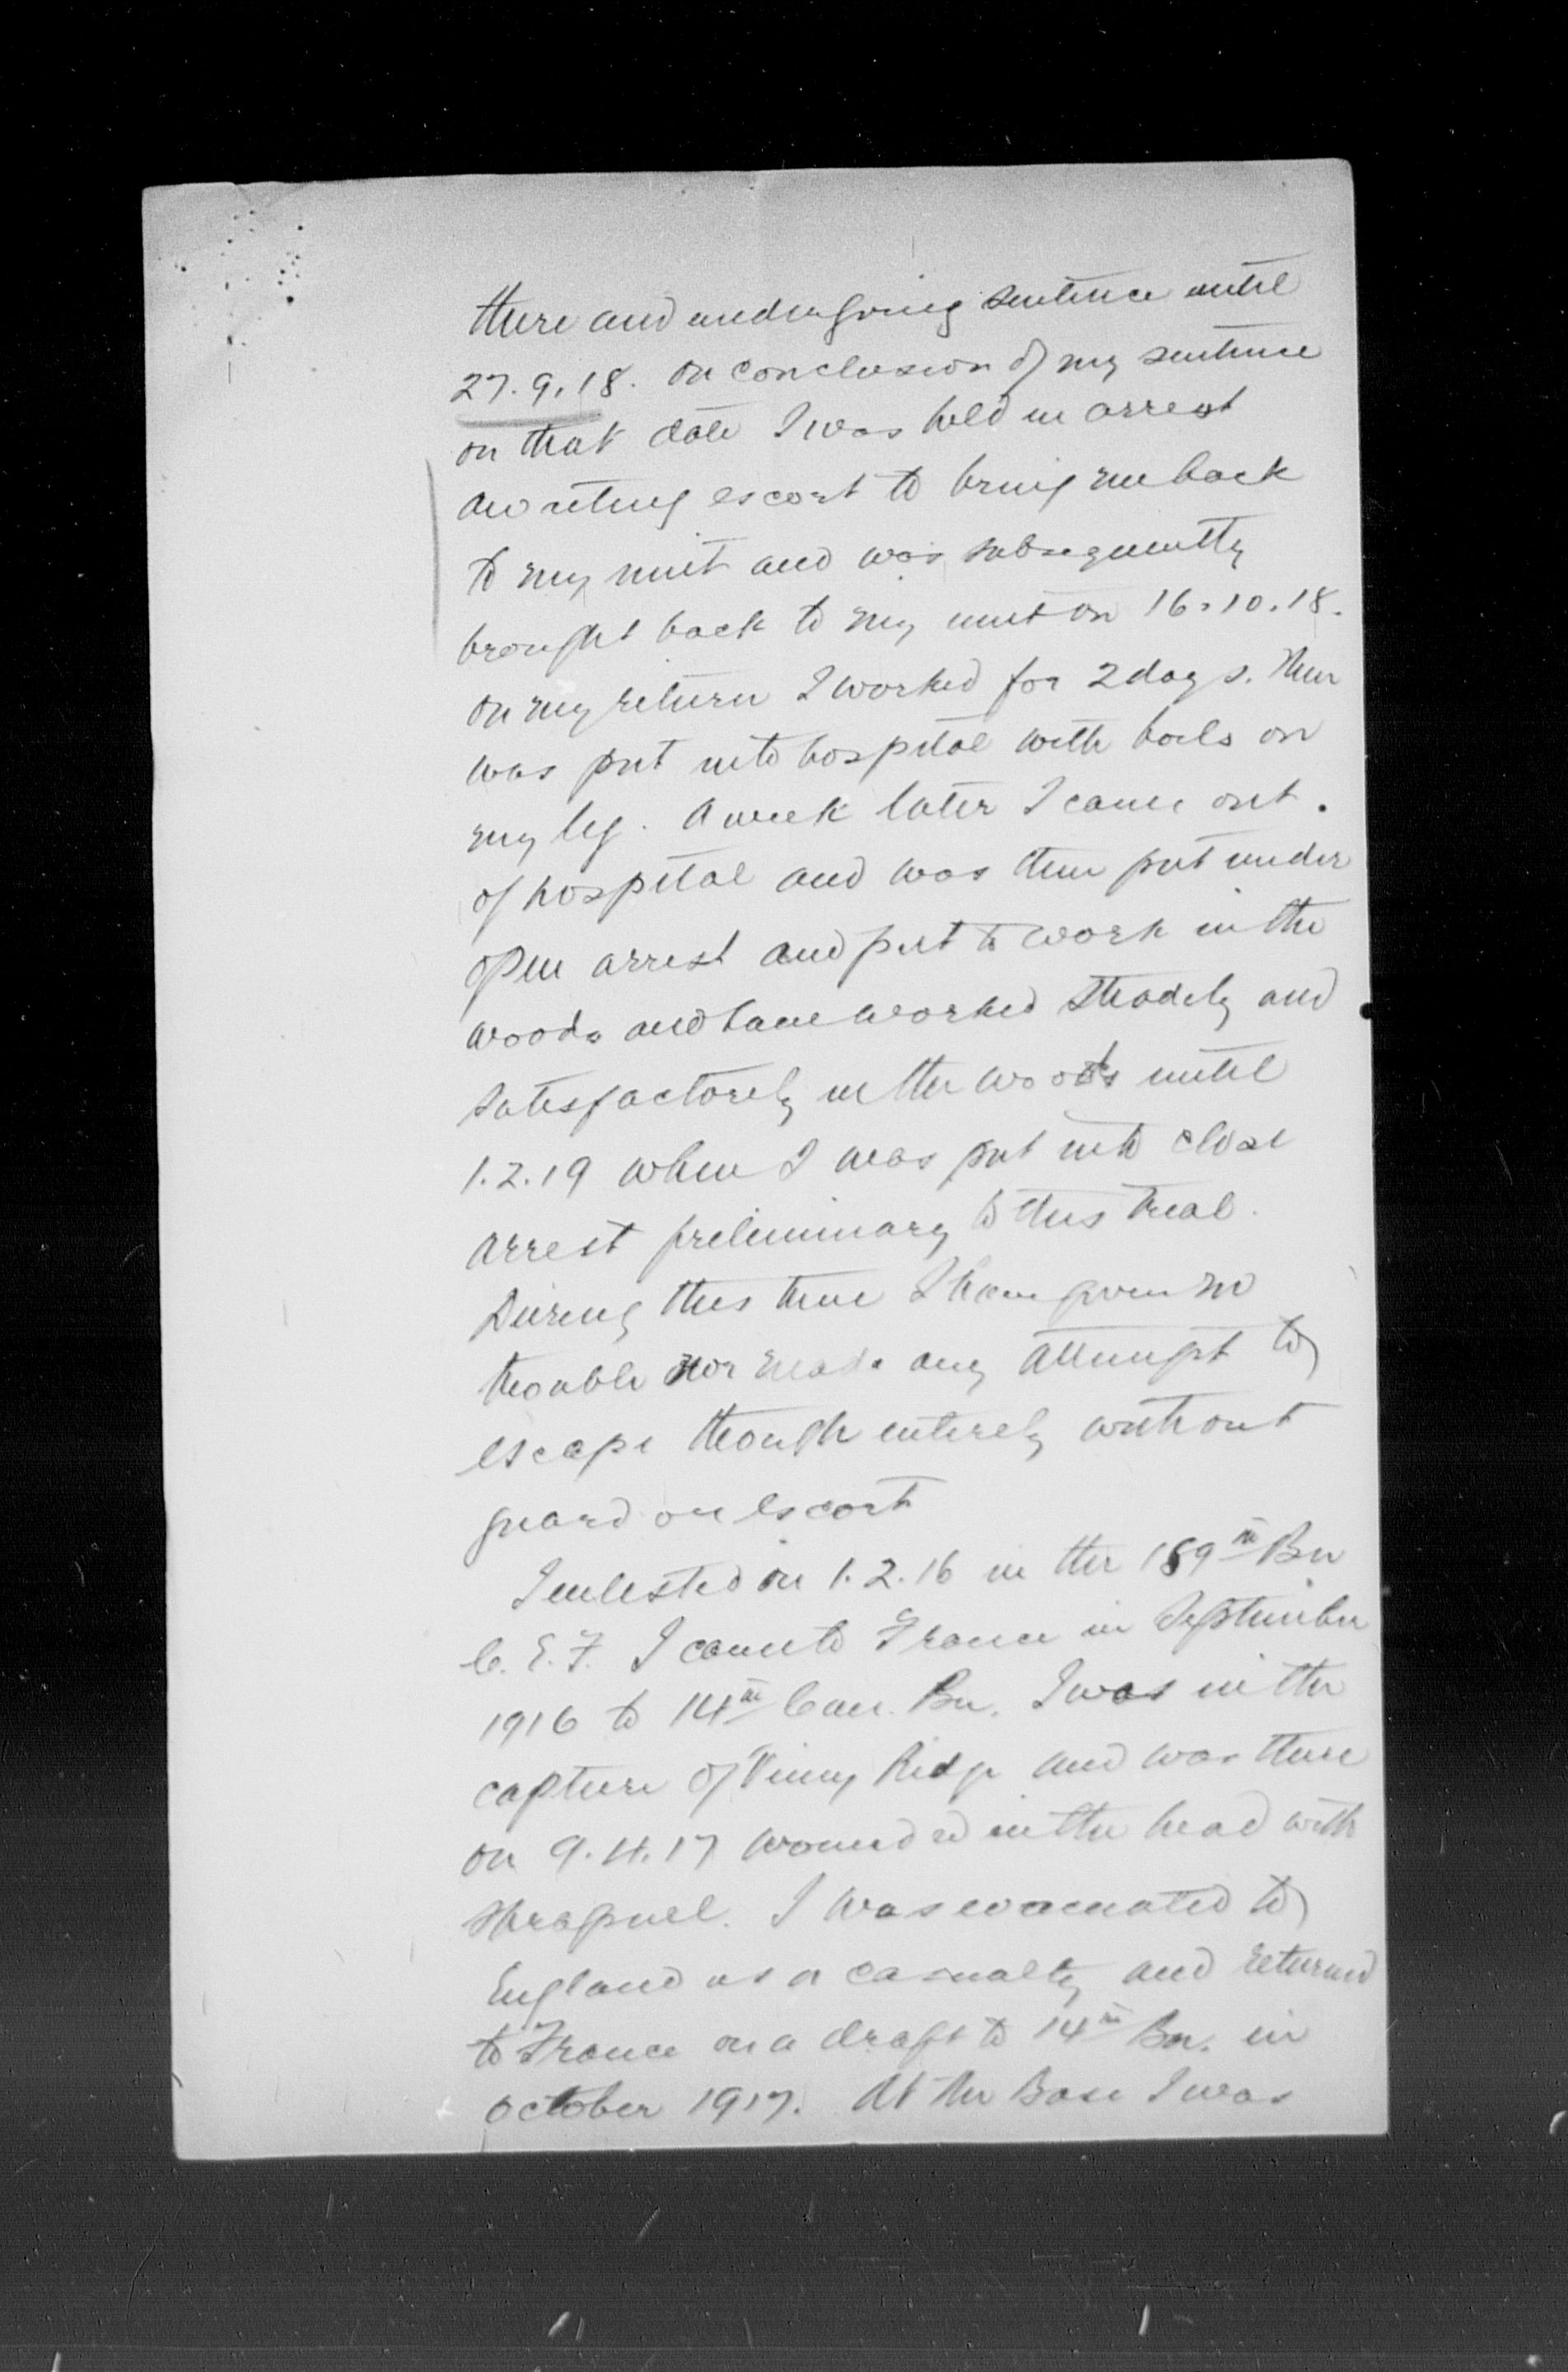 there and undergoing sentence until
27.9.18. On conclusion of my sentence
on that date I was held in arrest
awaiting escort to bring me back
to my unit and was subsequently
brought back to my unit on 16.10.18.
On my return I worked for 2 days. Then
was put into hospital with boils on
my leg. A week later I came out.
of hospital and was then put under
open arrest and put to work in the
woods and have worked steadily and
satisfactorily in the woods until
1.2.19 when I was put into close
arrest preliminary to this trial.
During this time I have given no
trouble nor made any attempt to
escape though entirely without
guard or escort
I enlisted on 1.2.16 in the 189th Bn
C.E.F. I came to France in September
1916 to 14th Can. Bn. I was in the
capture of Vimy Ridge and was there
on 9.4.17 wounded in the head with
shrapnel. I was evacuated to
England as a casualty and returned
to France on a draft to 14th Bn. in
October 1917. At the Base I was